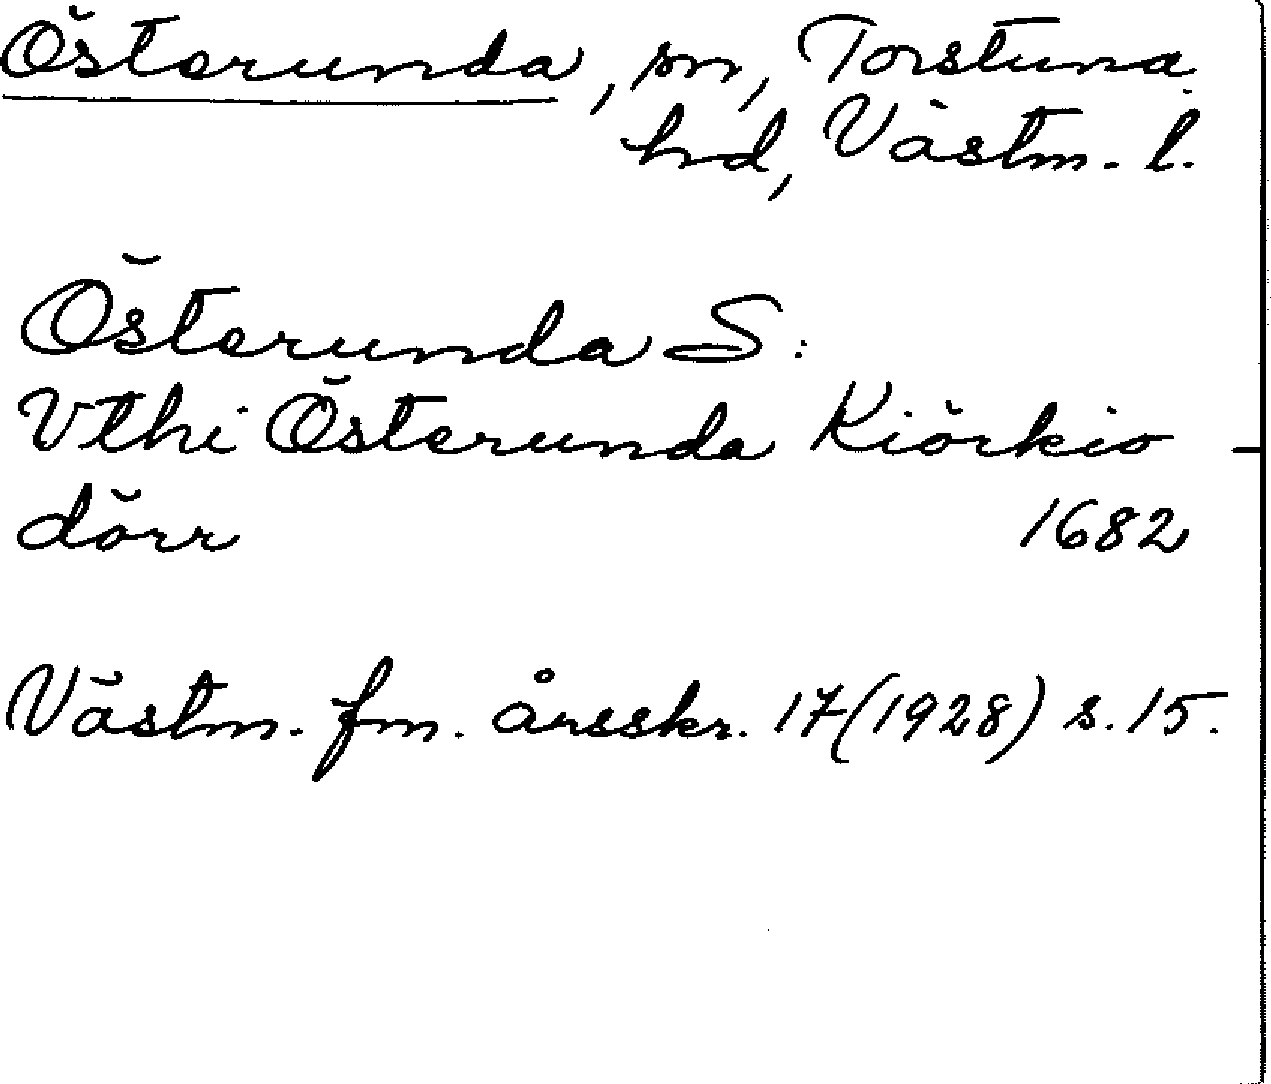 Österunda, sn, Torstuna
hd, Västm. l.
Österunda S:
Vthi Österunda Kiörkio-
dörr 1682
Västm. fm. årsskr. 17(1928) s. 15.